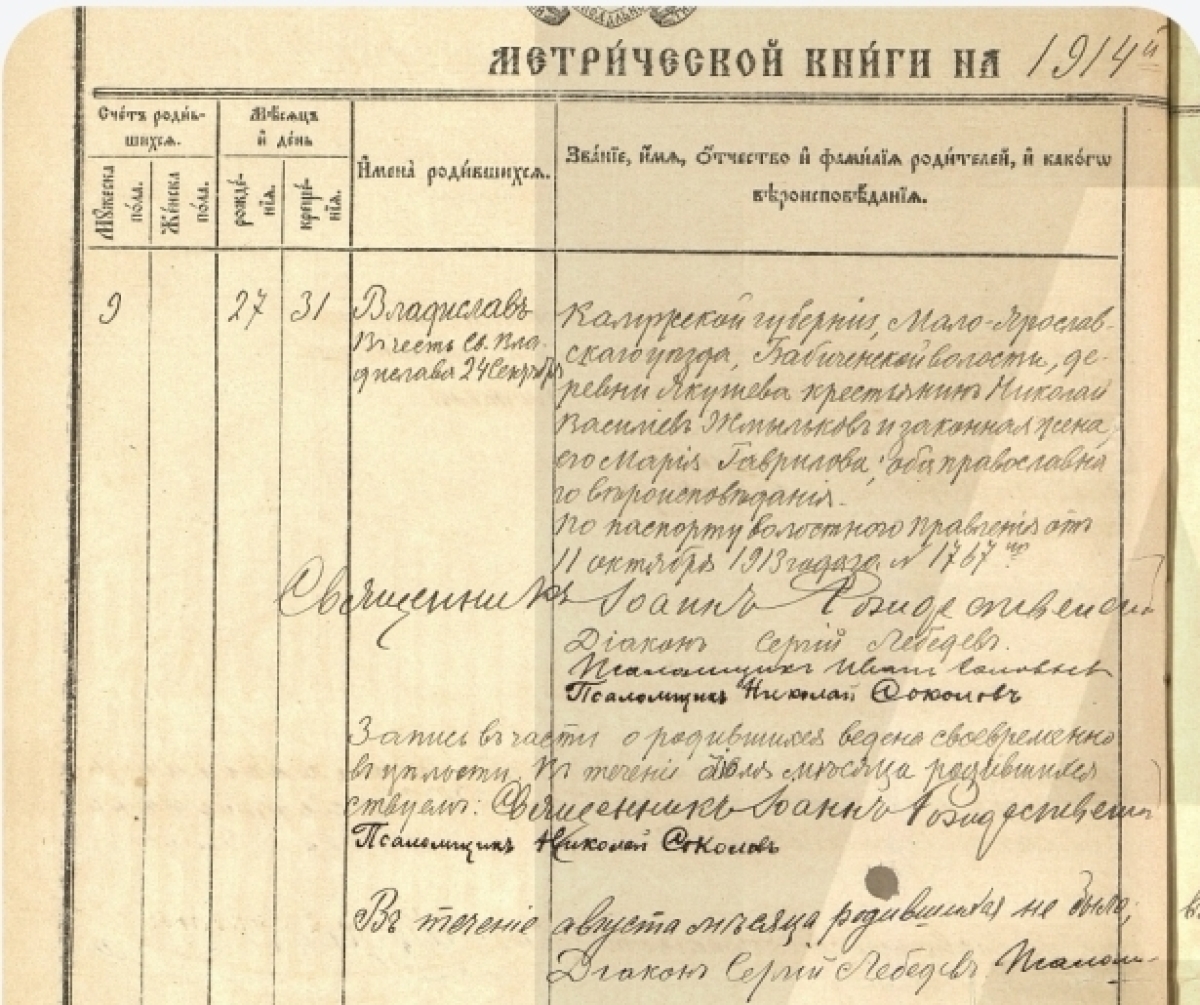 МЕТРИ́ЧЕСКОЙ КНИ́ГИ НА 1914й
Сче́тъ роди́в-
шихся.
Мѣ́сяцъ
и́ де́нь
И҆мена̀ роди́вшихся.
Зва́нїе, и҆́мя, ѻ҆́тчество и҆ фами́лїя роди́телей, и҆ како́гѡ
вѣроисповѣ́данїя.
Мꙋ́жеска
по́ла.
Же́нска
по́ла.
рожде́-
нїя.
креще́-
нїя.
9 27 31 Владиславъ
Въ честь св. Вла-
дислава 24 Сентября
Калужской губернiи, Мало-Ярослав-
скаго уѣзда, Бабиченской волости, де-
ревни Якушева крестьянинъ Николай
Василiевъ Жмыльковъ и законная жена
его Марiя Гаврилова; оба православна
го вѣроисповѣданiя.
По паспорту волостного правленiя отъ
11 октября 1913 года за № 1767
Священникъ Іоаннъ Рождественскій
Діаконъ Сергій Лебедевъ.
Псаломщикъ Иванъ Соловьевъ
Псаломщикъ Николай Соколовъ
Запись въ части о родившихся ведена своевременно
въ цѣлости. Въ теченiе мѣсяца родившихся
Священникъ Іоаннъ Рождественскій
Псаломщикъ Николай Соколовъ
Въ теченiе августа мѣсяца родившихся не было;
Дiаконъ Сергiй Лебедевъ. Псалом-